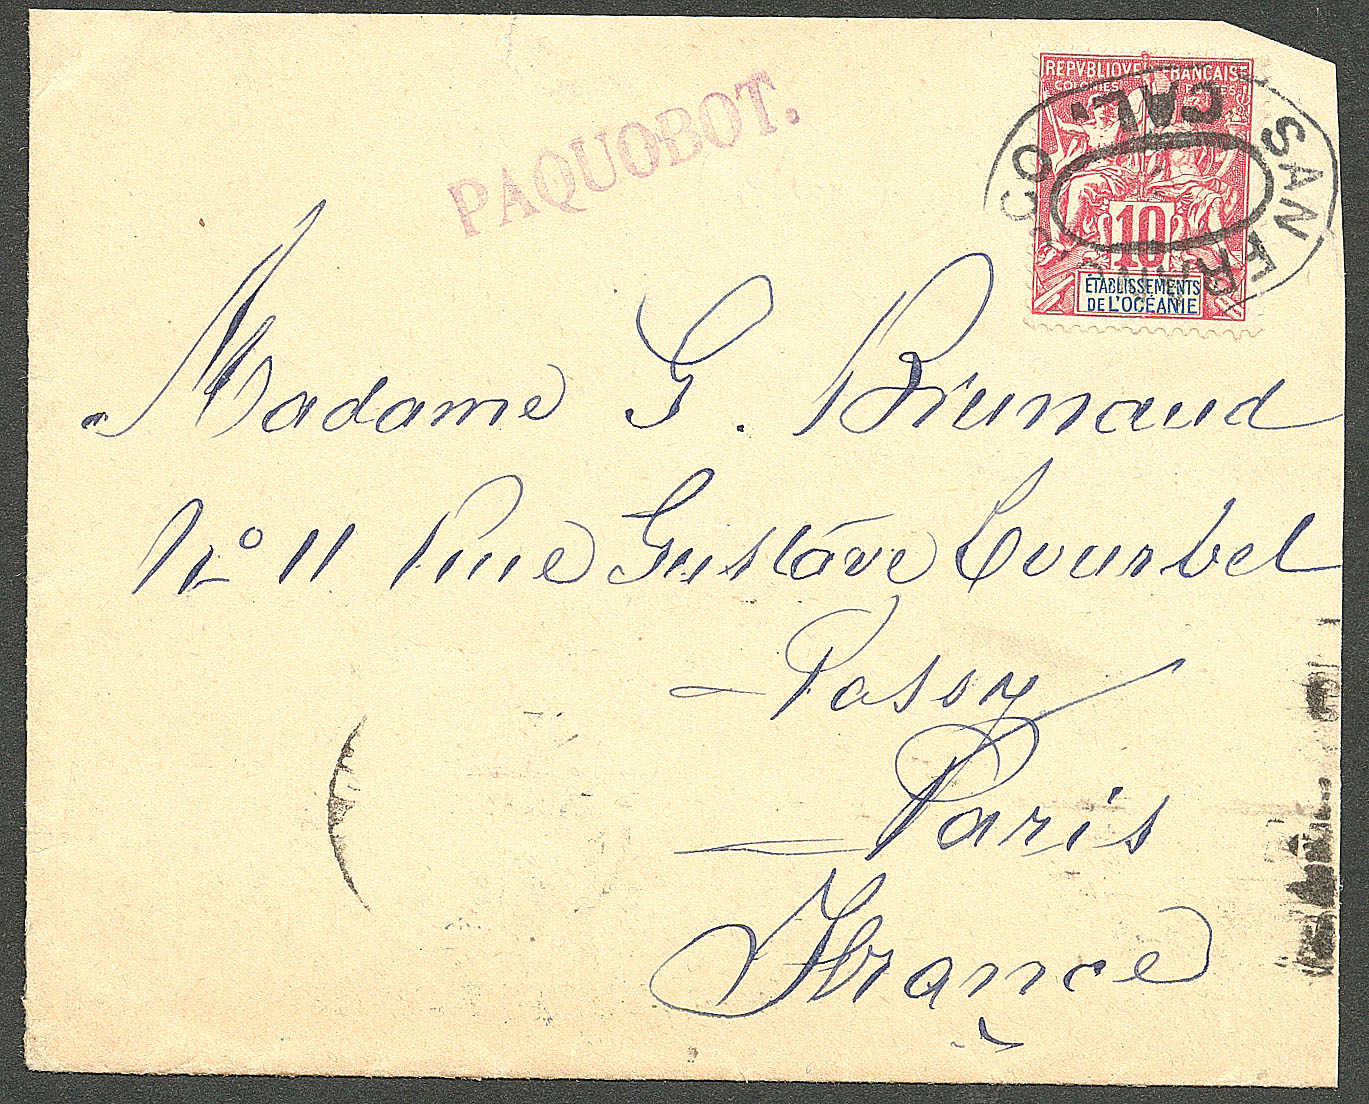 PAQUOBOT.
REPVBLIQVE FRANCAISE
COLONIES POSTES
10
ÉTABLISSEMENTS
DE L'OCÉANIE
SAN FRANCISCO
CAL.
Madame G. Brunaud
No 11 Rue Gustave Courbet
Passy
Paris
France